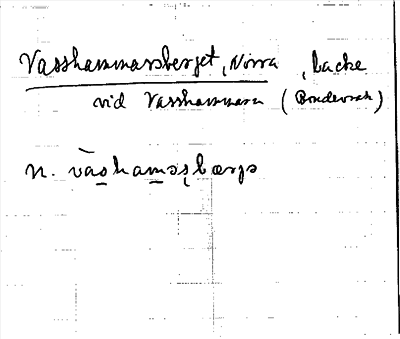 Vasshammarsberget, Norra, backe
vid Vasshammarn (Bondevrak)
n. vàshamaṣbærjə